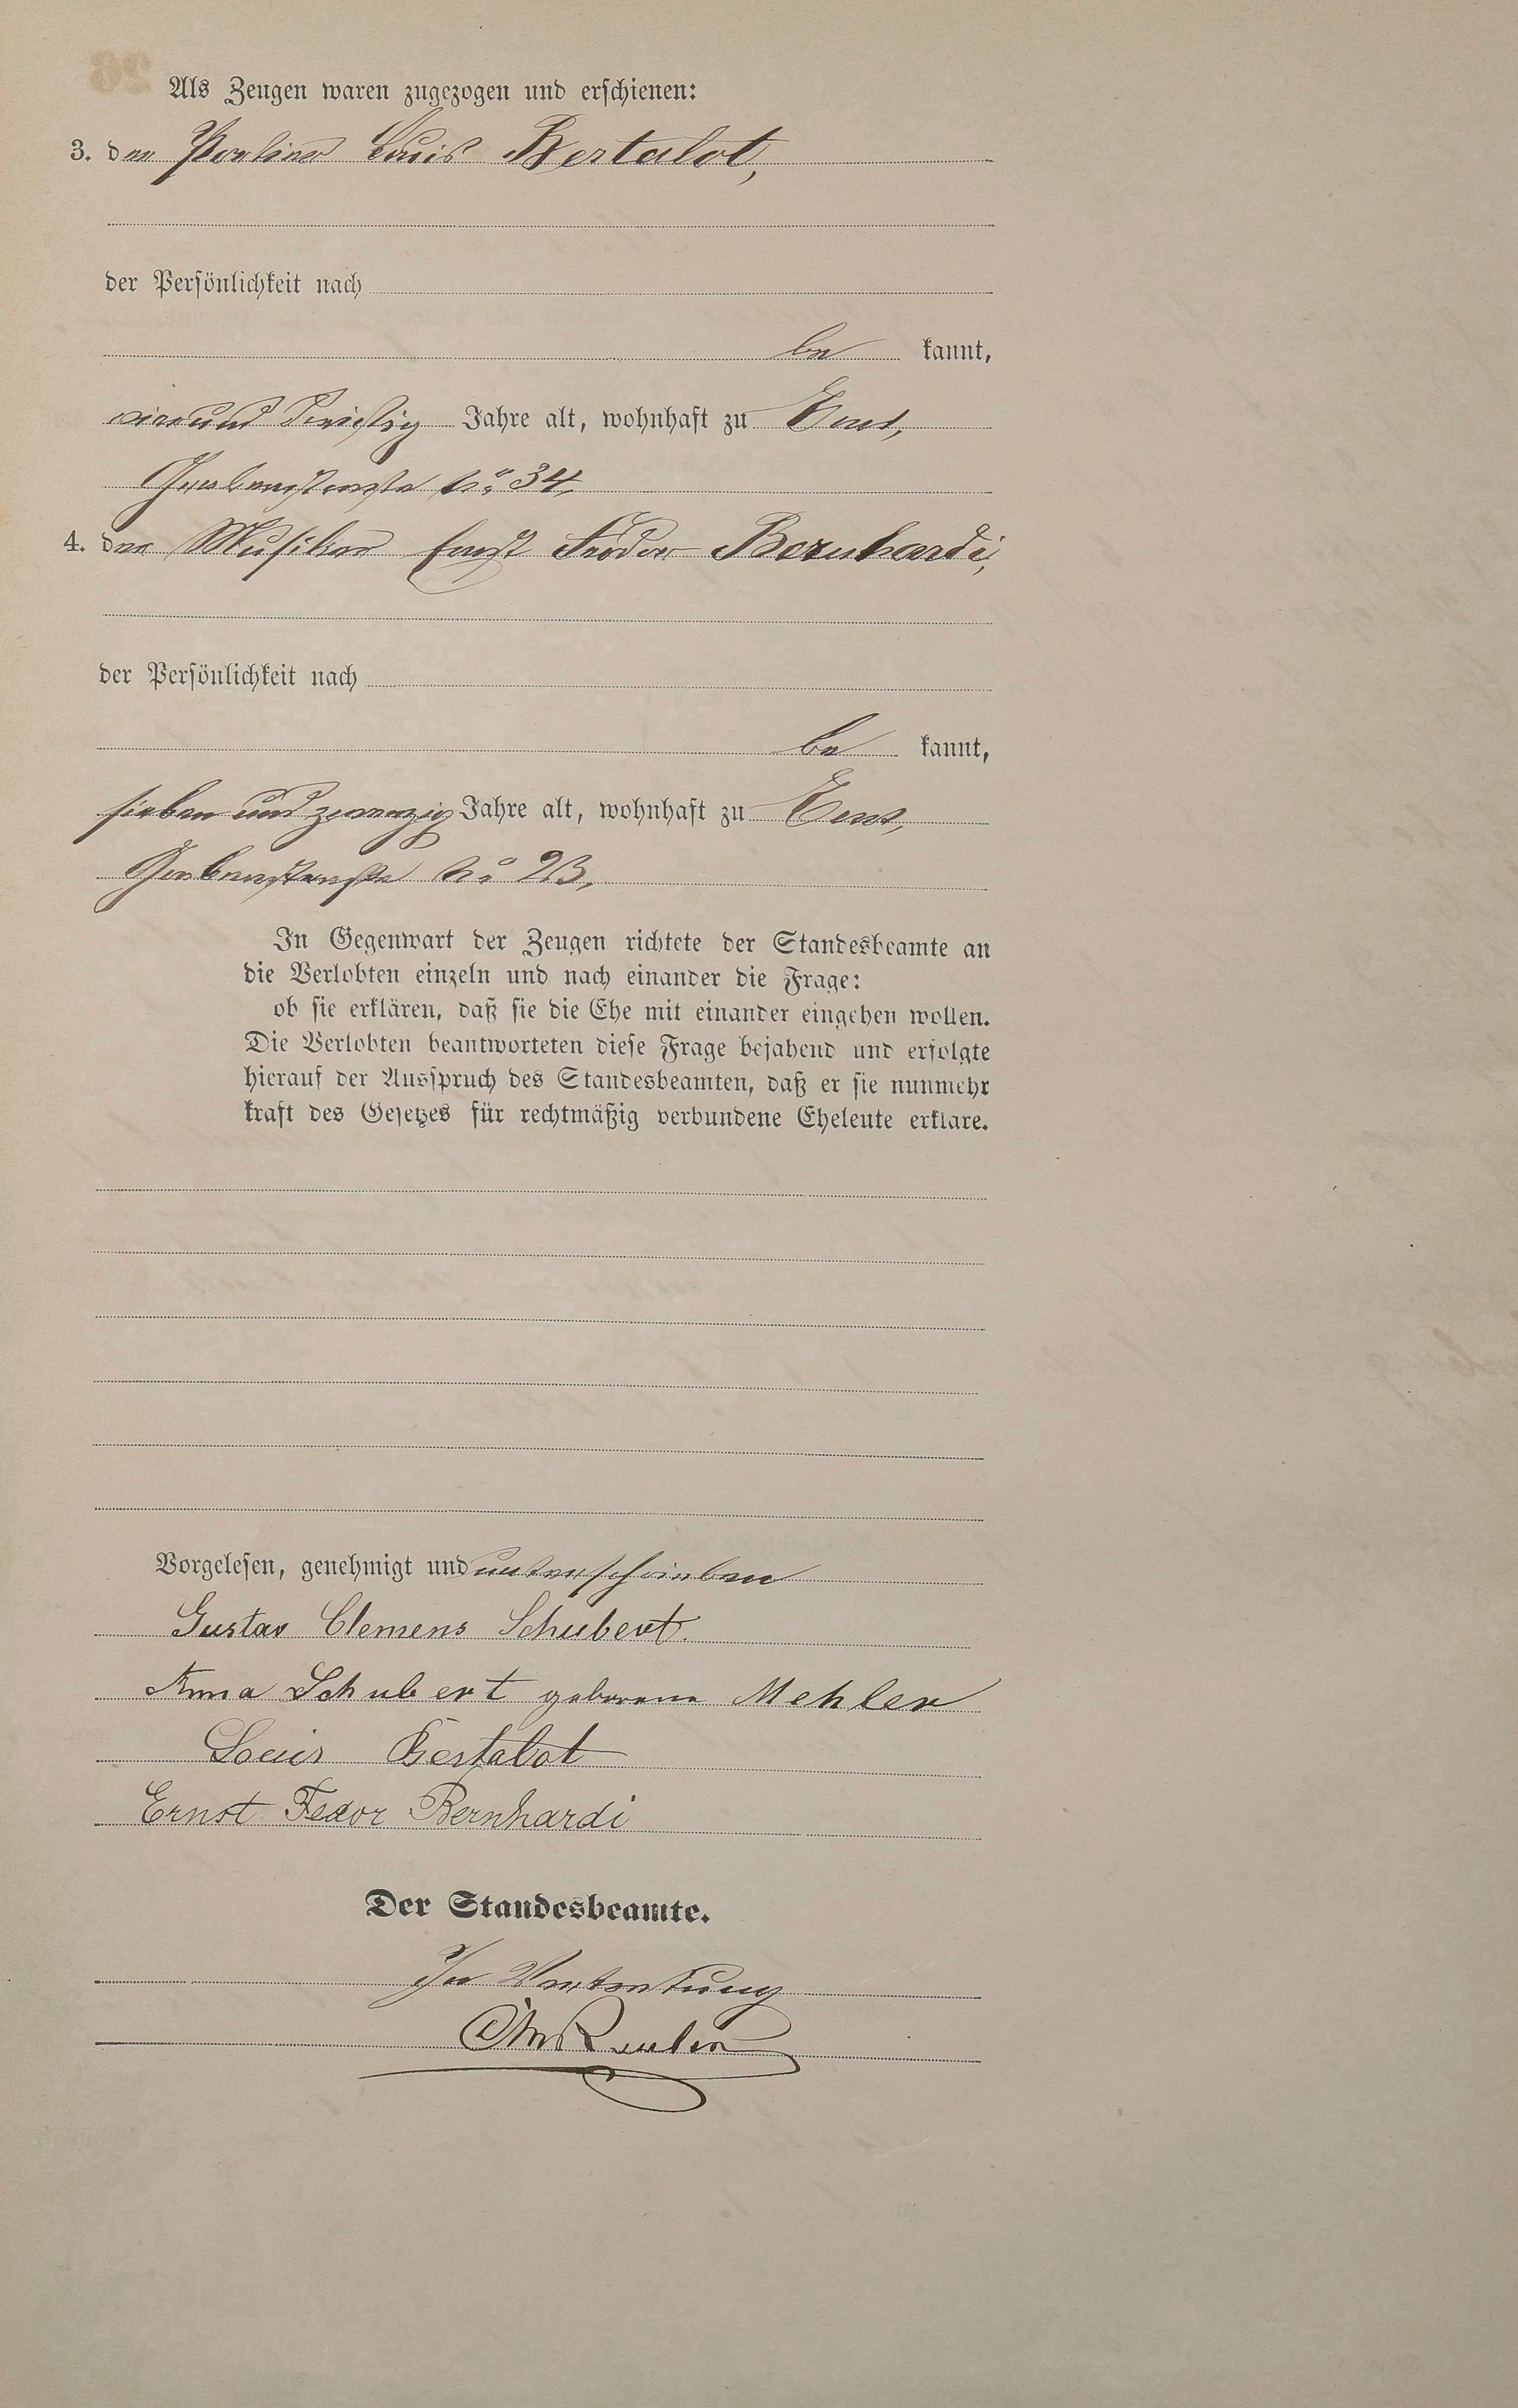 Als Zeugen waren zugezogen und erschienen:
3. der Portier Louis Bertalot,
der Persönlichkeit nach
be kannt,
vierund dreißig Jahre alt, wohnhaft zu Ems,
Grabenstraße No 34.
4. der Musiker Ernst Feodor Bernhardi,
der Persönlichkeit nach
be kannt,
sieben und zwanzig Jahre alt, wohnhaft zu Ems,
Grabenstraße No 23.
In Gegenwart der Zeugen richtete der Standesbeamte an
die Verlobten einzeln und nach einander die Frage:
ob sie erklären, daß sie die Ehe mit einander eingehen wollen.
Die Verlobten beantworteten diese Frage bejahend und erfolgte
hierauf der Ausspruch des Standesbeamten, daß er sie nunmehr
kraft des Gesetzes für rechtmäßig verbundene Eheleute erkläre.
Vorgelesen, genehmigt und unterschrieben
Gustav Clemens Schubert.
Anna Schubert geborene Mehler
Louis Bertalot
Ernst Fedor Bernhardi
Der Standesbeamte.
In Vertretung